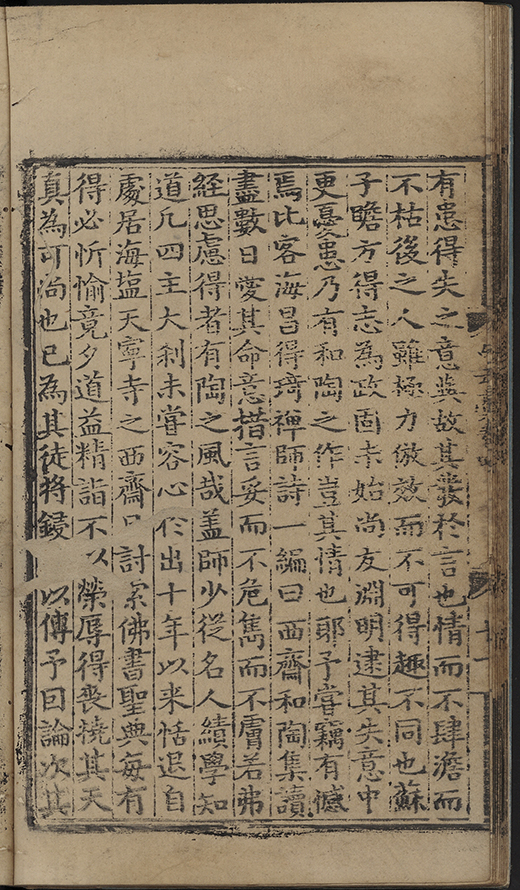 有患得失之意與故其發於言也情而不肆澹而
不枯後之人雖極力倣效而不可得趣不同也蘇
子瞻方得志為政固未始尚友淵明逮其失意中
更憂患乃有和陶之作豈其情也耶予嘗竊有憾
焉比客海昌得琦禪師詩一編曰西齋和陶集讀
盡數日愛其命意措言妥而不危雋而不膚若弗
經思慮得者有陶之風哉盖師少從名人績學知
道凡四主大刹未嘗容心於出十年以来恬退自
處居海塩天寧寺之西齋日討索佛書聖典每有
得必忻愉竟夕道益精詣不以榮辱得喪撓其天
真為可尚也已為其徒將鋟 以傳予曰論次其